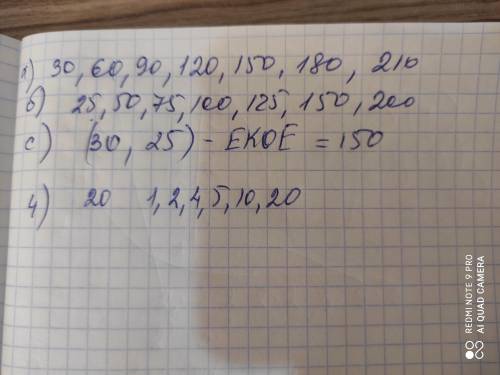 а) 30, 60, 90, 120, 150, 180, 210
б) 25, 50, 75, 100, 125, 150, 200
с) (30, 25) - ЕКОЕ = 150
4) 20 1, 2, 4, 5, 10, 20
REDMI NOTE 9 PRO
AI QUAD CAMERA